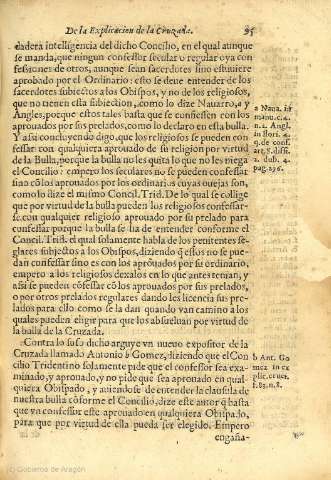 De la Explicacion de la Cruzada. 95
dadera intelligencia del dicho Concilio, en el qual aunque
se manda, que ningun confessor secular o regular oya con
fessiones de otros, aunque sean sacerdotes sino estuuiere
aprouado por el Ordinario: esto se deue entender de los
sacerdotes subiectos a los Obispos, y no de los religiosos,
que no tienen esta subiection, como lo dize Nauarro, a y
Angles, porque estos tales basta que se confiessen con los
aprouados por sus prelados, como lo declaro en esta bulla.
Y assi concluyendo digo, que los religiosos se pueden con-
fessar con qualquiera aprouado de su religion por virtud
de la Bulla, porque la bulla no les quita lo que no les niega
el Concilio: empero los seculares no se pueden confessar
sino cõ los aprouados por los ordinarios cuyas ouejas son,
como lo dize el mismo Concil. Trid. De lo qual se colige
que por virtud de la bulla pueden los religiosos confessar-
se con qualquier religioso aprouado por su prelado para
confessar porque la bulla se ha de entender conforme el
Concil. Trid. el qual solamente habla de los penitentes se-
glares subjectos a los Obispos, diziendo q̃ estos no se pue-
dan confessar sino es con los aprouados por su ordinario,
empero a los religiosos dexalos en lo que antes tenian, y
assi se pueden cõfessar cõ los aprouados por sus prelados,
o por otros prelados regulares dando les licencia sus pre-
lados para ello como se la dan quando van camino a los
quales pueden eligir para que los absueluan por virtud de
la bulla de la Cruzada.
Contra lo suso dicho arguye vn nueuo expositor de la
Cruzada llamado Antonio b Gomez, diziendo que el Con
cilio Tridentino solamente pide que el confessor sea exa-
minado, y aprouado, y no pide que sea aprouado en qual
quiera Obispado, y auiendose de entender la clausula de
nuestra bulla cõforme el Concilio, dize este autor q̃ basta
que vn confessor este aprouado en qualquiera Obispado,
para que por virtud de ella pueda ser elegido. Empero
engaña-
a Naua. in
manu. c. 4.
n. 2. Angl.
in flori. 4.
q. de conf.
art. 5. diff.
2. dub. 4.
pag. 296.
b Ant. Go
mez in ex
plic. cruc.
f. 83. n. 8.
(c) Gobierno de Aragón